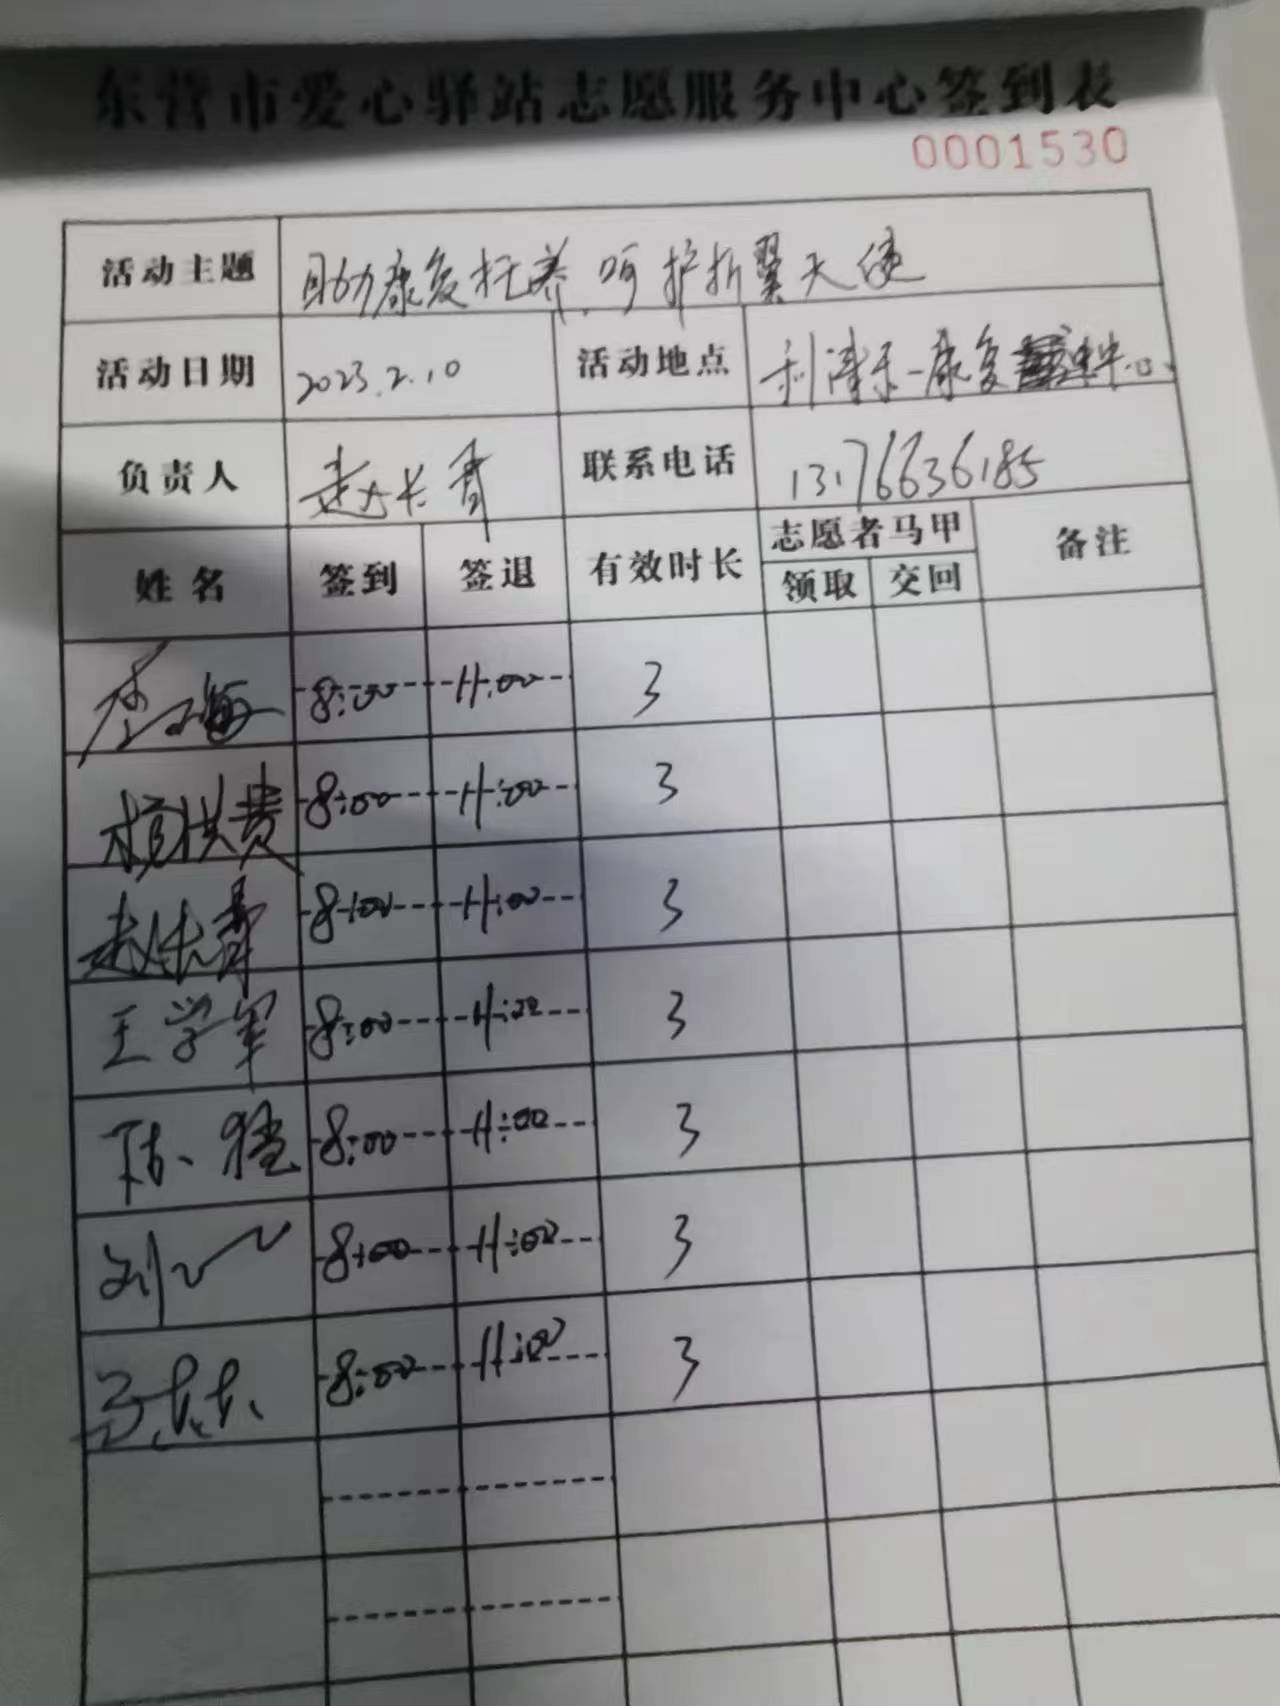 东营市爱心驿站志愿服务中心签到表
0001530
活动主题 助康复托养,呵护折翼天使
活动日期 2023.2.10 活动地点 利津乐一康复中心
负责人 赵长青 联系电话 13176636185
姓名 签到 签退 有效时长 志愿者马甲 备注
领取 交回
李海 8:00 11:00 3
8:00 11:00 3
赵长青 8:00 11:00 3
王学军 8:00 11:00 3
8:00 11:00 3
8:00 11:00 3
8:00 11:00 3